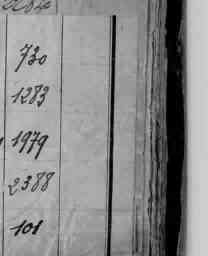 730
1283
1979
2388
101